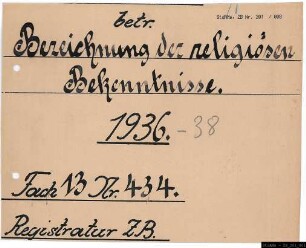 betr.
Bezeichnung der religiösen
Bekenntnisse.
1936.-38
Fach 13 Nr. 434.
Registratur Z.B.